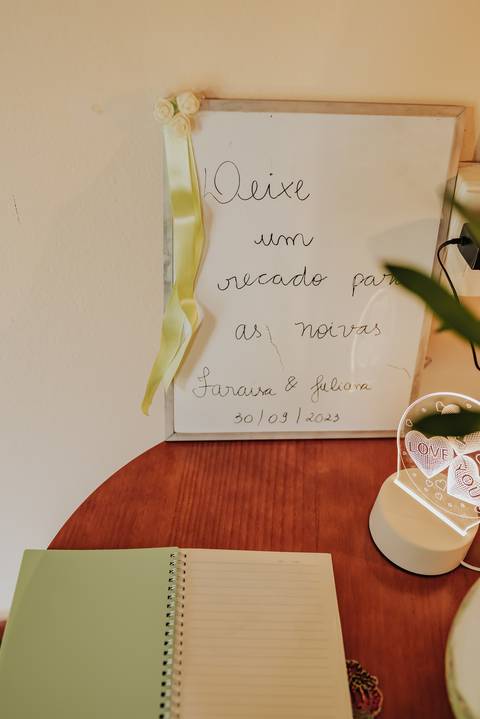 Deixe
um
recado para
as noivas
Taraisa & Juliana
30/09/2023
LOVE
YOU